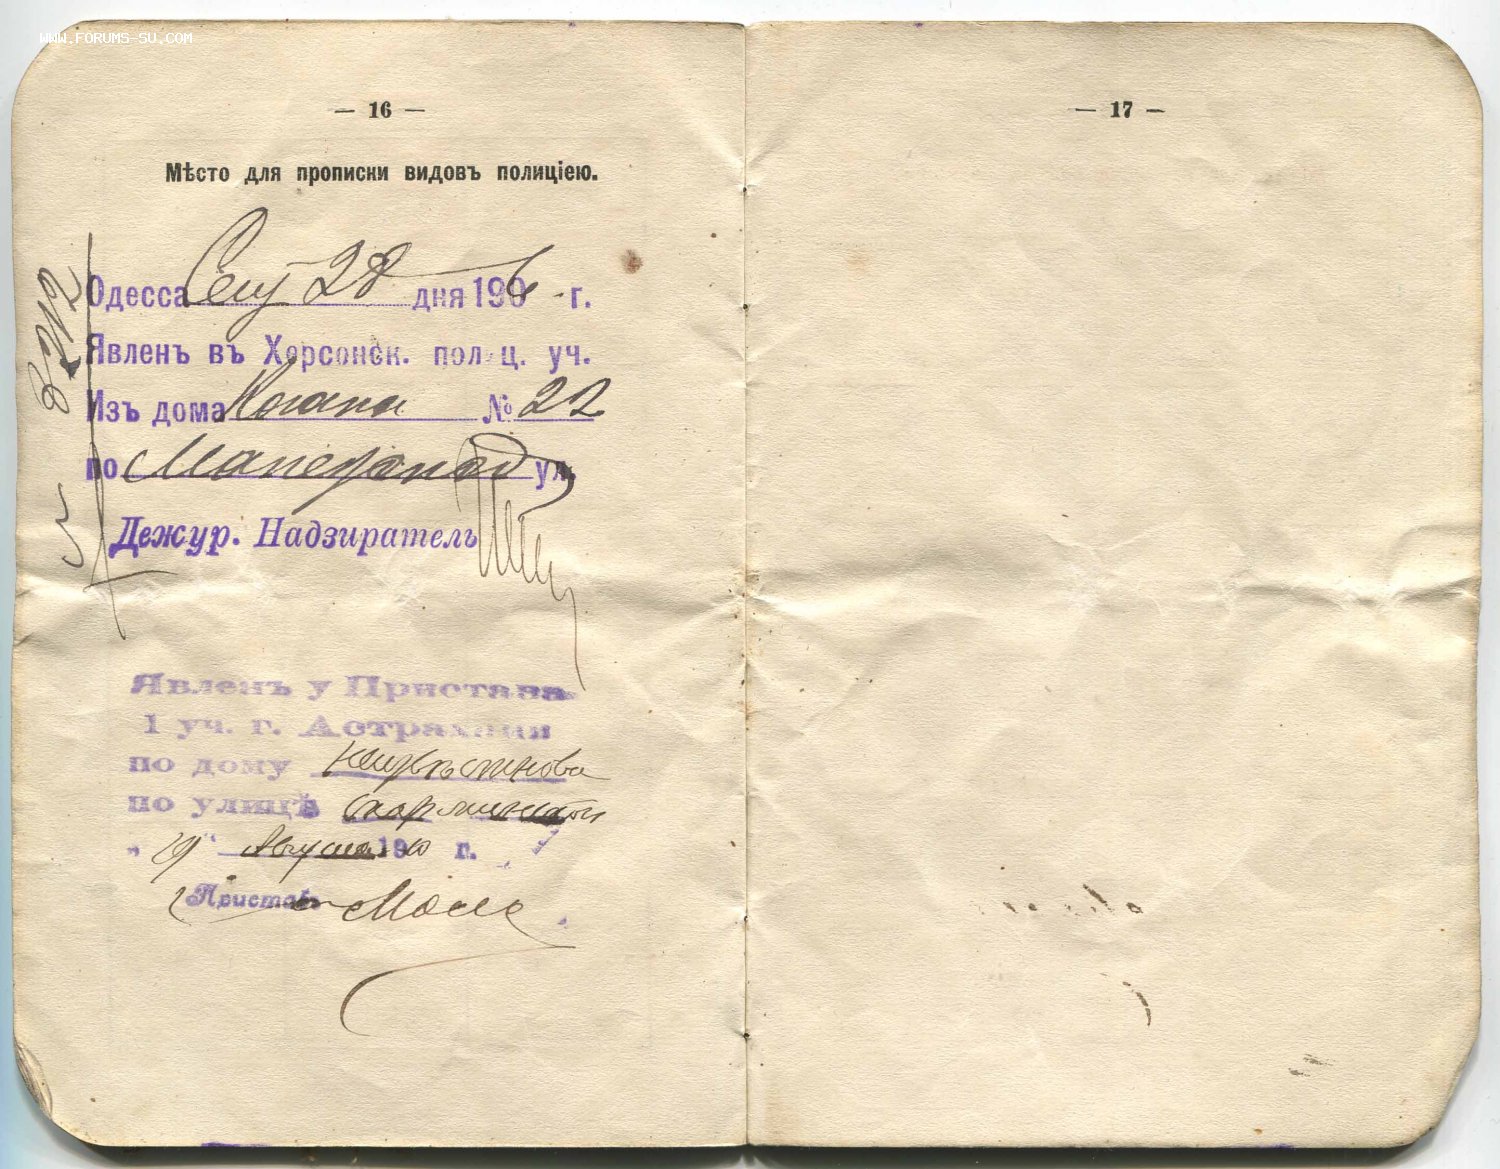 WWW.FORUMS-SU.COM
— 16 —
Мѣсто для прописки видовъ полиціею.
8212
Одесса Сент 28 дня 1906 г.
Явленъ въ Херсонск. полиц. уч.
Изъ дома Когана № 22
по ул.
Дежур. Надзиратель
Явленъ у Пристава
1 уч. г. Астрахани
по дому Неизвѣстнова
по улицѣ
„ 19 “ Августа 1910 г.
Приставъ
— 17 —